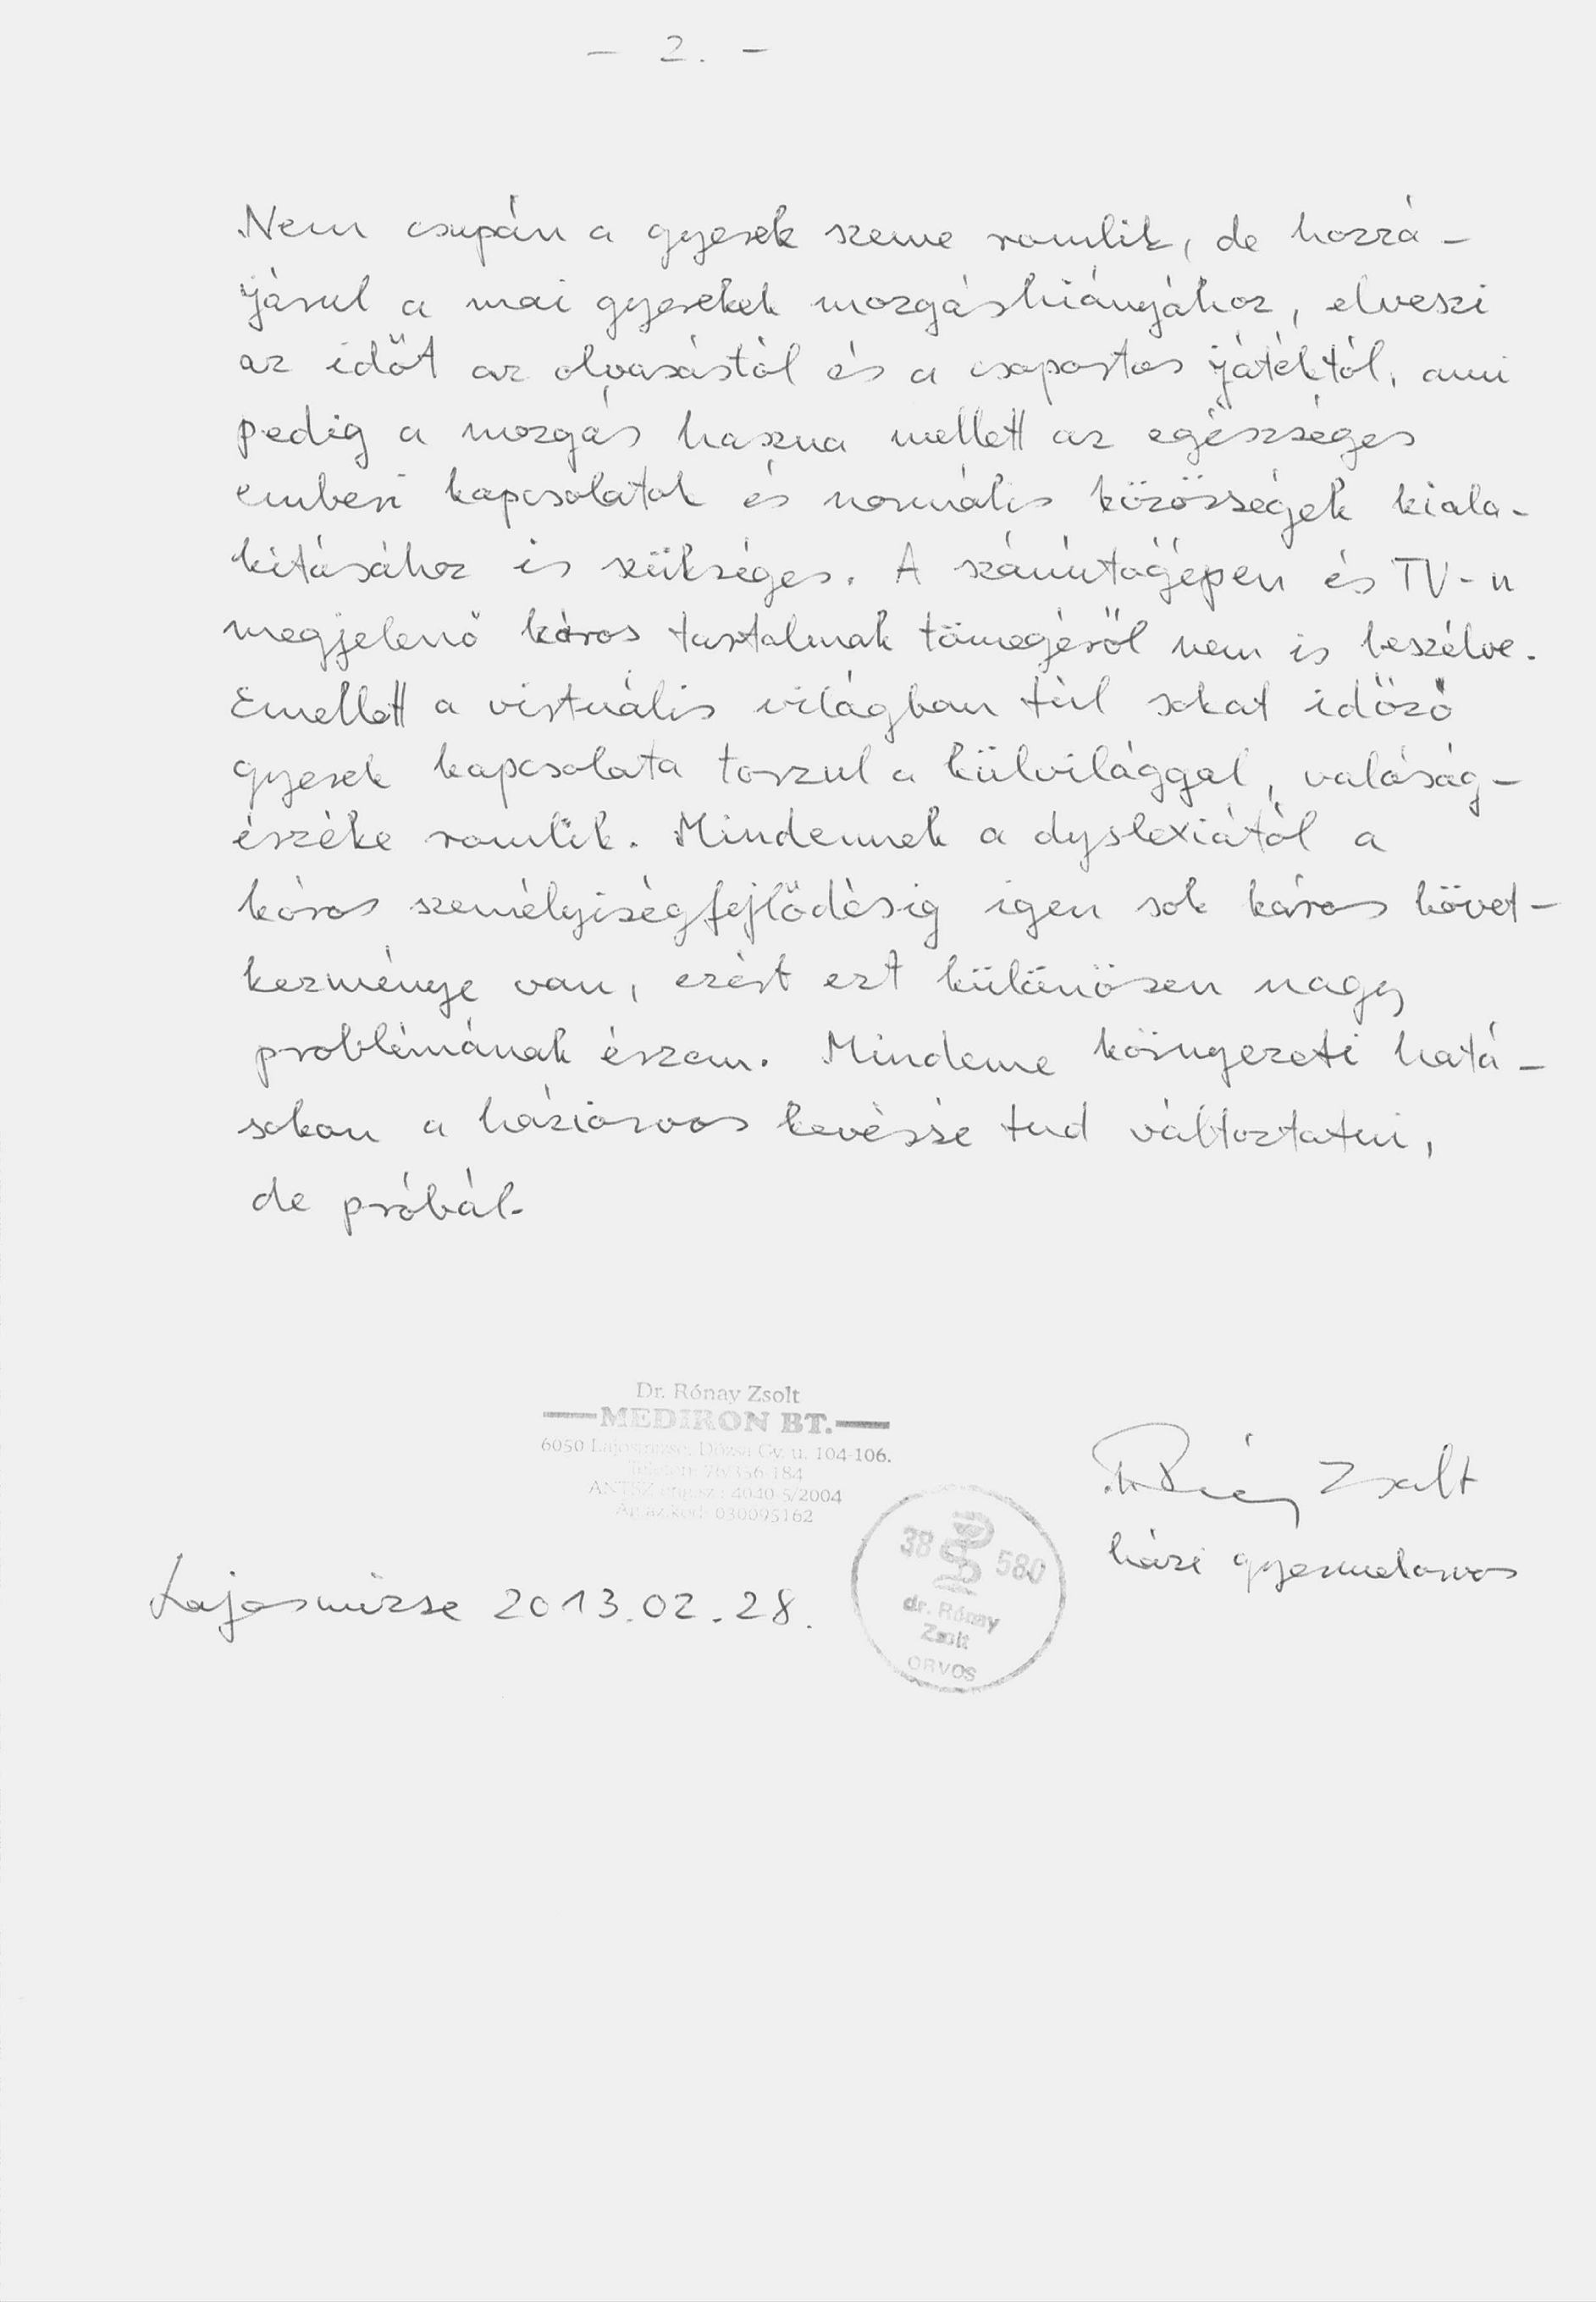 - 2. -
Nem csupán a gyerek szeme romlik, de hozzá-
járul a mai gyerekek mozgáshiányához, elveszi
az időt az olvasástól és a csoportos játéktól, ami
pedig a mozgás haszna mellett az egészséges
emberi kapcsolatok és normális közösségek kiala-
kításához is szükséges. A számítógépen és TV-n
megjelenő káros tartalmak tömegéről nem is beszélve.
Emellett a virtuális világban túl sokat időző
gyerek kapcsolata torzul a külvilággal, valóság-
érzéke romlik. Mindennek a dyslexiától a
kóros személyiségfejlődésig igen sok káros követ-
kezménye van, ezért ezt különösen nagy
problémának érzem. Mindeme környezeti hatá-
sokon a háziorvos kevéssé tud változtatni,
de próbál.
Dr. Rónay Zsolt
MEDIRON BT.
6050 Lajosmizse, Dózsa Gy. u. 104-106.
Telefon: 76/356-184
4040-5/2004
030095162
Zsolt
házi gyermekorvos
38 580
dr. Rónay
Zsolt
ORVOS
Lajosmizse 2013.02.28.